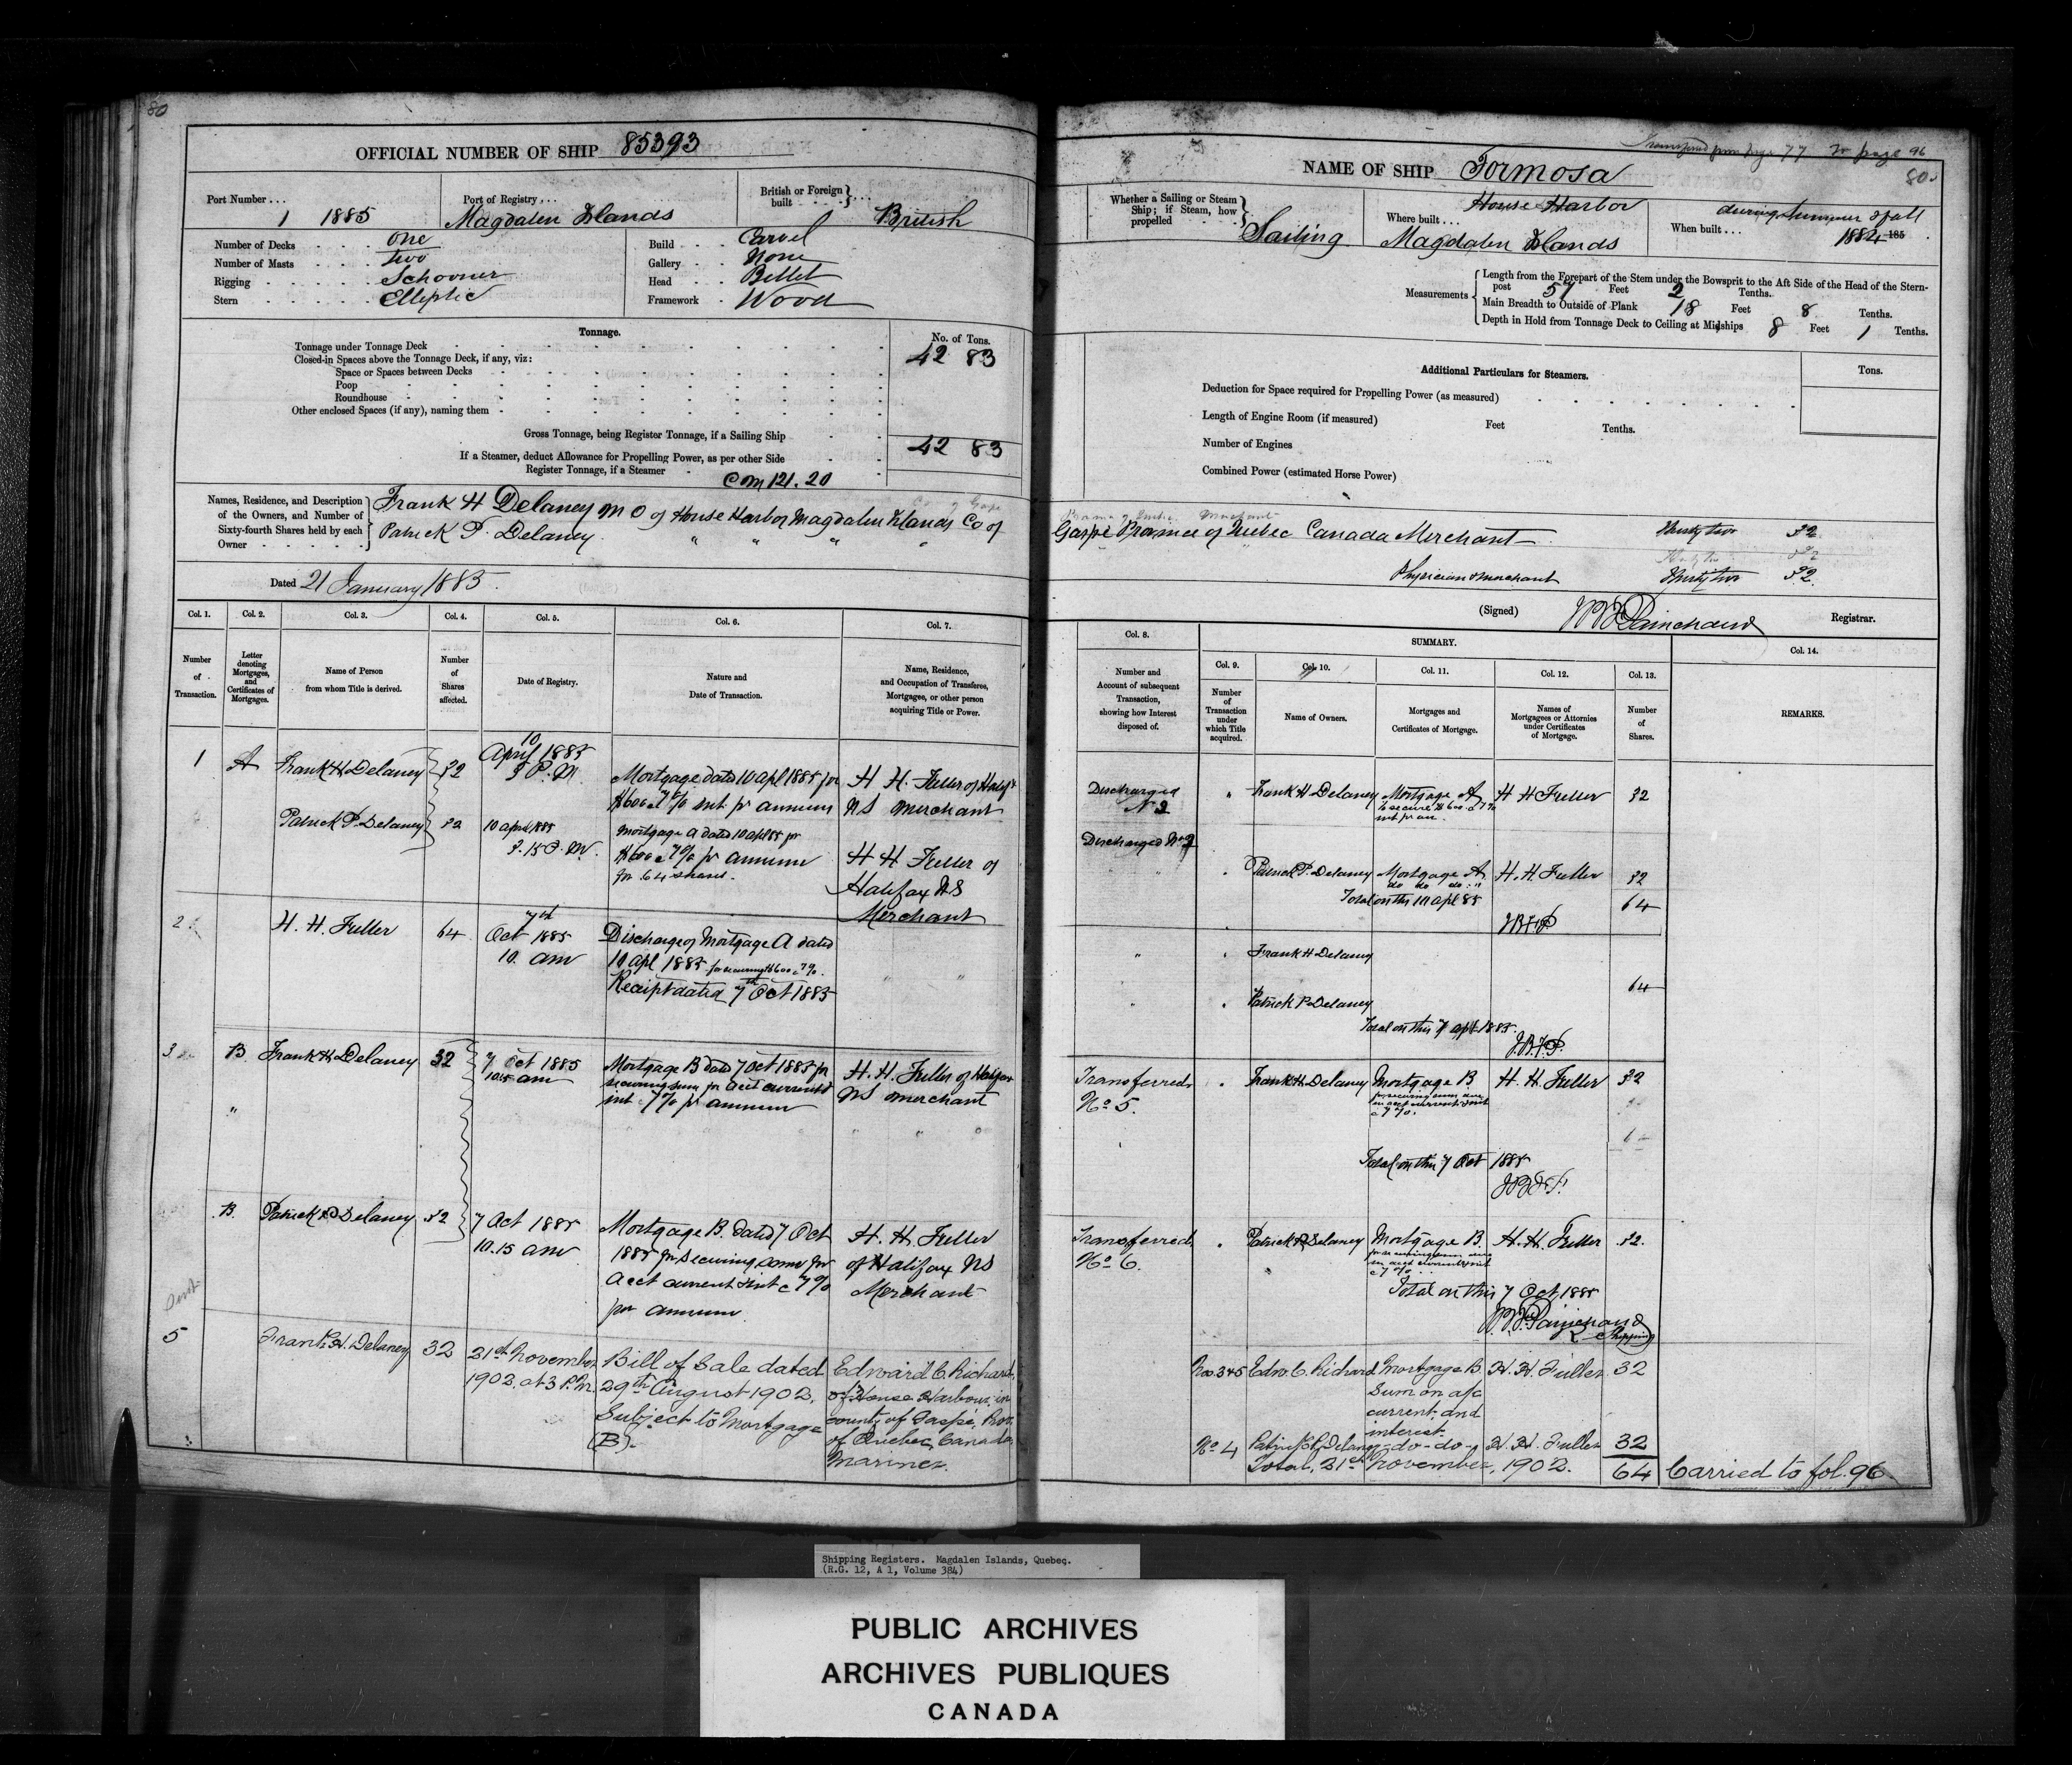 80
OFFICIAL NUMBER OF SHIP 85393
Port Number . . . 1 1885
Port of Registry . . . Magdalen Islands
British or Foreign built . . . . . British
Number of Decks . . . One
Number of Masts . . . two
Rigging . . . . . Schooner
Stern . . . . . Elliptic
Build . . Carvel
Gallery . . None
Head . . Billet
Framework . Wood
Tonnage.
No. of Tons.
Tonnage under Tonnage Deck 42 83
Closed-in Spaces above the Tonnage Deck, if any, viz:
Space or Spaces between Decks
Poop
Roundhouse
Other enclosed Spaces (if any), naming them
Gross Tonnage, being Register Tonnage, if a Sailing Ship 42 83
If a Steamer, deduct Allowance for Propelling Power, as per other Side
Register Tonnage, if a Steamer
Cm 121.20
Names, Residence, and Description
of the Owners, and Number of
Sixty-fourth Shares held by each
Owner . . . . .
Frank H Delaney M O of House Harbor Magdalen Islands Co of
Patrick P. Delaney " " " "
Dated 21 January 1885.
Col. 1. Col. 2. Col. 3. Col. 4. Col. 5. Col. 6. Col. 7.
Number of Transaction.
Letter denoting Mortgages, and Certificates of Mortgages.
Name of Person from whom Title is derived.
Number of Shares affected.
Date of Registry.
Nature and Date of Transaction.
Name, Residence, and Occupation of Transferee, Mortgagee, or other person acquiring Title or Power.
1 A Frank H Delaney 32
10
April 1885
3 P.M
Mortgage dated 10 apl 1885 for
$600 @ 7% int pr annum
H H. Fuller of Halifx
NS Merchant
Patrick P. Delaney 32
10 april 1885
3.15 P.M.
Mortgage A dated 10 apl 85 for
$600 @ 7% pr annum
for 64 shares.
H H Fuller of
Halifax NS
Merchant
2 H. H. Fuller 64
7th
Oct 1885
10. am
Discharge of Mortgage A dated
10 apl 1885 for securing $600 @ 7%.
Receipt dated 7th Oct 1885
3 B Frank H Delaney 32
7 Oct 1885
10.15 am
Mortgage B dated 7 Oct 1885 for
securing sum for acct current &
int @ 7% pr annum
H. H. Fuller of Halifax
NS Merchant
B. Patrick P Delaney 32
7 Oct 1885
10.15 am
Mortgage B. dated 7 Oct
1885 for securing sum for
acct current & int @ 7%
per annum
H. H. Fuller
of Halifax NS
Merchant
5 Frank H. Delaney 32
21st November
1902. at 3 P.M.
Bill of Sale dated
29th August 1902.
Subject to Mortgage
(B).
Edward C. Richard,
of House Harbour, in
county of Gaspé, Prov.
of Quebec, Canada,
Mariner.
Transferred from page 77 to page 96
80
NAME OF SHIP Formosa
Whether a Sailing or Steam
Ship; if Steam, how
propelled . . . Sailing
Where built . . . House Harbor
Magdalen Islands
When built . . . during summer & fall
1884 185
Measurements
Length from the Forepart of the Stem under the Bowsprit to the Aft Side of the Head of the Stern-
post 57 Feet 2 Tenths.
Main Breadth to Outside of Plank 18 Feet 8 Tenths.
Depth in Hold from Tonnage Deck to Ceiling at Midships 8 Feet 1 Tenths.
Additional Particulars for Steamers.
Tons.
Deduction for Space required for Propelling Power (as measured)
Length of Engine Room (if measured) Feet Tenths.
Number of Engines
Combined Power (estimated Horse Power)
Gaspé Province of Quebec Canada Merchant Thirty two 32
Physician & Merchant Thirty two 32.
(Signed) JBF Painchaud Registrar.
SUMMARY.
Col. 8. Col. 9. Col. 10. Col. 11. Col. 12. Col. 13. Col. 14.
Number and Account of subsequent Transaction, showing how Interest disposed of.
Number of Transaction under which Title acquired.
Name of Owners.
Mortgages and Certificates of Mortgage.
Names of Mortgagees or Attornies under Certificates of Mortgage.
Number of Shares.
REMARKS.
Discharged
No 2
Frank H Delaney Mortgage A H H Fuller 32
to secure $600 @ 7%
int pr an.
Discharged No 2
Patrick P. Delaney Mortgage A. H. H. Fuller 32
do do do
Total on this 10 apl 85 64
JBFP
Frank H Delaney
64
Patrick P Delaney
Total on this 7 apl 1885.
J.B.F.P.
Transferred
No 5.
Frank H Delaney Mortgage B H. H. Fuller 32
for securing sum due
on acct current & int
@ 7%.
Total on this 7 Oct 1885
JBFP.
Transferred
No 6.
Patrick P Delaney Mortgage B. H. H. Fuller 32.
for securing sum due
on acct current & int
@ 7%
Total on this 7 Oct 1885
JBF Painchaud
R Shipping
Nos. 3 & 5 Edw. C. Richard Mortgage B H. H. Fuller. 32
Sum on a/c
current, and
interest.
No 4 Patrick P. Delaney -do-do- H. H. Fuller 32
Total, 21st November, 1902. 64
Carried to fol. 96
Shipping Registers. Magdalen Islands, Quebec.
(R.G. 12, A 1, Volume 384)
PUBLIC ARCHIVES
ARCHIVES PUBLIQUES
CANADA